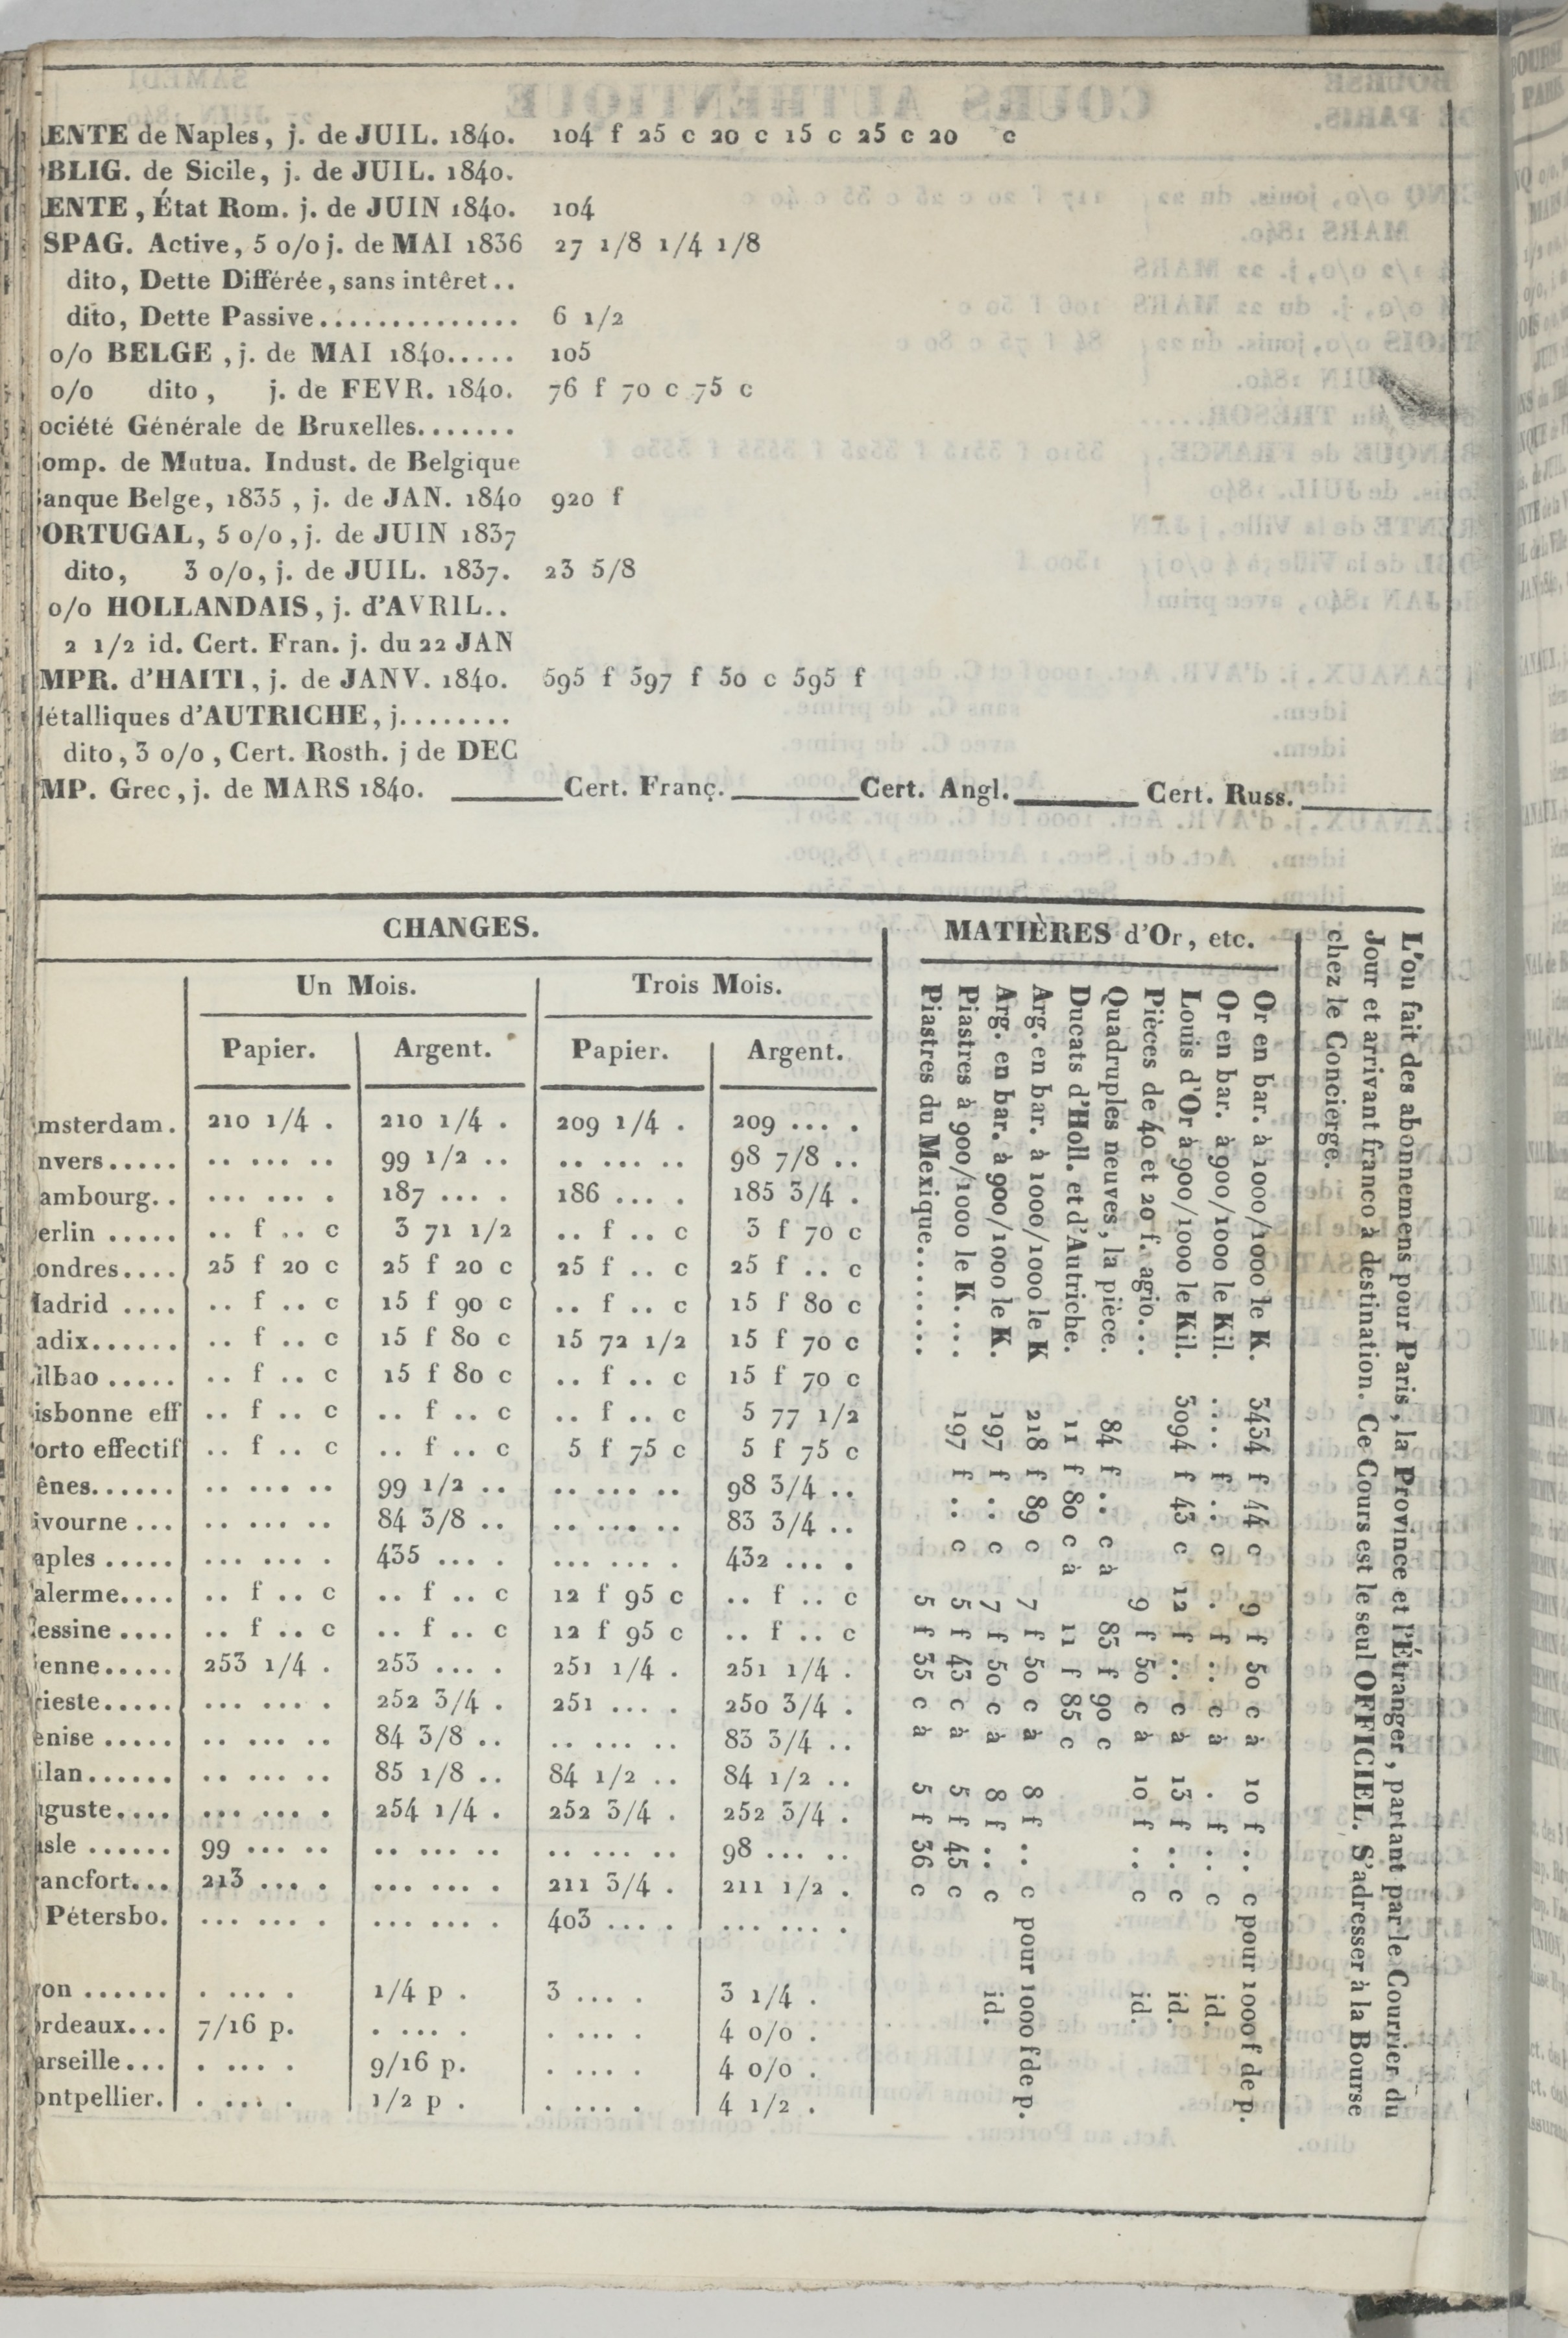 ENTE de Naples, j. de JUIL. 1840. 104 f 25 c 20 c 15 c 25 c 20 c
BLIG. de Sicile, j. de JUIL. 1840.
ENTE, État Rom. j. de JUIN 1840. 104
SPAG. Active, 5 o/o j. de MAI 1836 27 1/8 1/4 1/8
dito, Dette Différée, sans intêret..
dito, Dette Passive.............. 6 1/2
o/o BELGE, j. de MAI 1840..... 105
o/o dito, j. de FEVR. 1840. 76 f 70 c 75 c
ociété Générale de Bruxelles.......
omp. de Mutua. Indust. de Belgique
anque Belge, 1835, j. de JAN. 1840 920 f
ORTUGAL, 5 o/o, j. de JUIN 1837
dito, 3 o/o, j. de JUIL. 1837. 23 5/8
o/o HOLLANDAIS, j. d'AVRIL..
2 1/2 id. Cert. Fran. j. du 22 JAN
MPR. d'HAITI, j. de JANV. 1840. 595 f 597 f 50 c 595 f
étalliques d'AUTRICHE, j........
dito, 3 o/o, Cert. Rosth. j de DEC
MP. Grec, j. de MARS 1840. ______ Cert. Franç. ______ Cert. Angl. ______ Cert. Russ. ______
CHANGES.
Un Mois. Trois Mois.
Papier. Argent. Papier. Argent.
msterdam. 210 1/4 . 210 1/4 . 209 1/4 . 209 ... .
nvers..... .. ... .. 99 1/2 .. .. ... .. 98 7/8 ..
ambourg.. ... ... . 187 ... . 186 ... . 185 3/4 .
erlin ..... .. f .. c 3 71 1/2 .. f .. c 3 f 70 c
ondres.... 25 f 20 c 25 f 20 c 25 f .. c 25 f .. c
adrid .... .. f .. c 15 f 90 c .. f .. c 15 f 80 c
adix...... .. f .. c 15 f 80 c 15 72 1/2 15 f 70 c
ilbao ..... .. f .. c 15 f 80 c .. f .. c 15 f 70 c
isbonne eff .. f .. c .. f .. c .. f .. c 5 77 1/2
orto effectif .. f .. c .. f .. c 5 f 75 c 5 f 75 c
ênes...... .. ... .. 99 1/2 .. .. ... .. 98 3/4 ..
ivourne ... .. ... .. 84 3/8 .. .. ... .. 83 3/4 ..
aples ..... ... ... . 435 ... . ... ... . 432 ... .
alerme.... .. f .. c .. f .. c 12 f 95 c .. f .. c
essine .... .. f .. c .. f .. c 12 f 95 c .. f .. c
enne..... 253 1/4 . 253 ... . 251 1/4 . 251 1/4 .
rieste..... ... ... . 252 3/4 . 251 ... . 250 3/4 .
enise ..... .. ... .. 84 3/8 .. .. ... .. 83 3/4 ..
ilan...... .. ... .. 85 1/8 .. 84 1/2 .. 84 1/2 ..
guste.... ... ... . 254 1/4 . 252 3/4 . 252 3/4 .
asle ...... 99 ... .. .. ... .. .. ... .. 98 ... ..
ancfort... 213 ... . ... ... . 211 3/4 . 211 1/2 .
Pétersbo. ... ... . ... ... . 403 ... . ... ... .
on ...... . ... . 1/4 p . 3 ... . 3 1/4 .
rdeaux... 7/16 p. . ... . . ... . 4 o/o .
arseille... . ... . 9/16 p. . ... . 4 o/o .
ontpellier. . ... . 1/2 p . . ... . 4 1/2 .
MATIÈRES d'Or, etc.
Or en bar. à 1000/1000 le K. 3434 f 44 c 9 f 50 c à 10 f .. c pour 1000 f de p.
Or en bar. à 900/1000 le Kil. .... f .. c . f .. c à . f .. c id.
Louis d'Or à 900/1000 le Kil. 3094 f 43 c 12 f .. c à 13 f .. c id.
Pièces de 40 et 20 f. agio... 9 f 50 c à 10 f .. c id.
Quadruples neuves, la pièce. 84 f .. c à 83 f 90 c
Ducats d'Holl. et d'Autriche. 11 f 80 c à 11 f 85 c
Arg. en bar. à 1000/1000 le K 218 f 89 c 7 f 50 c à 8 f .. c pour 1000 f de p.
Arg. en bar. à 900/1000 le K. 197 f .. c 7 f 50 c à 8 f .. c id.
Piastres à 900/1000 le K.... 197 f .. c 5 f 43 c à 5 f 45 c
Piastres du Mexique....... 5 f 35 c à 5 f 36 c
L'on fait des abonnemens pour Paris, la Province et l'Étranger, partant par le Courrier du
Jour et arrivant franco à destination. Ce Cours est le seul OFFICIEL. S'adresser à la Bourse
chez le Concierge.